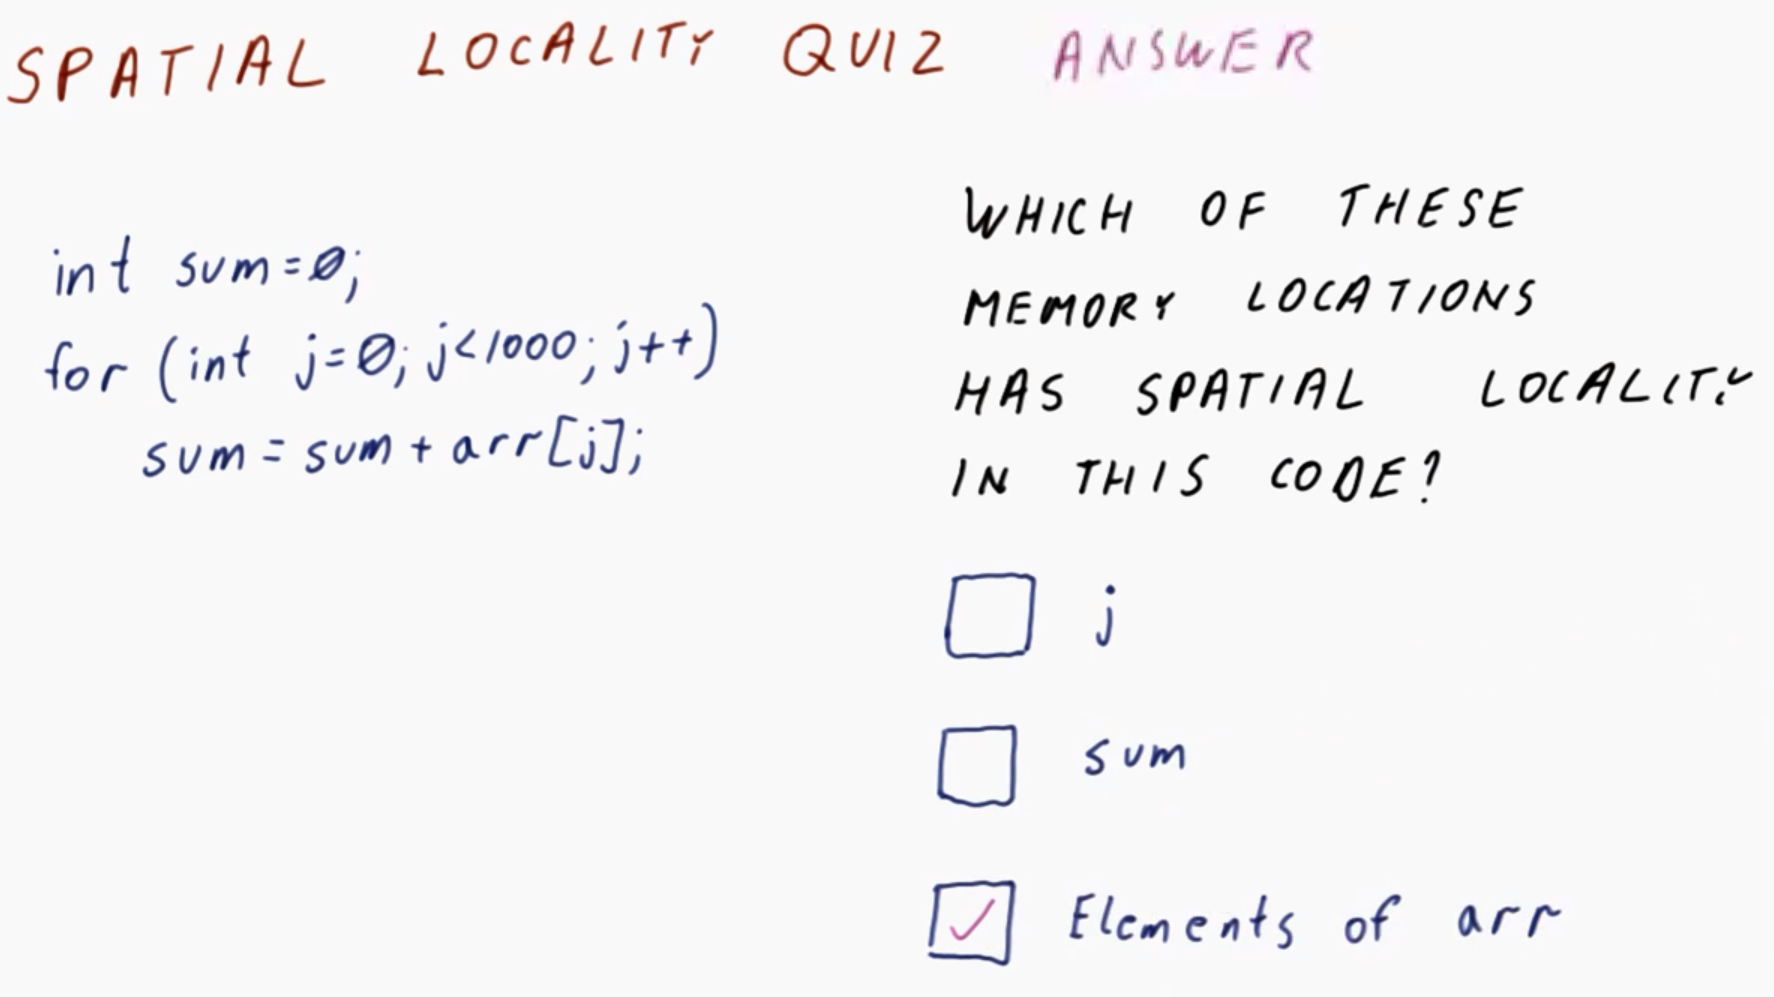 SPATIAL LOCALITY QUIZ ANSWER
int sum=0;
for (int j=0; j<1000; j++)
sum = sum + arr[j];
WHICH OF THESE
MEMORY LOCATIONS
HAS SPATIAL LOCALITY
IN THIS CODE?
j
sum
Elements of arr